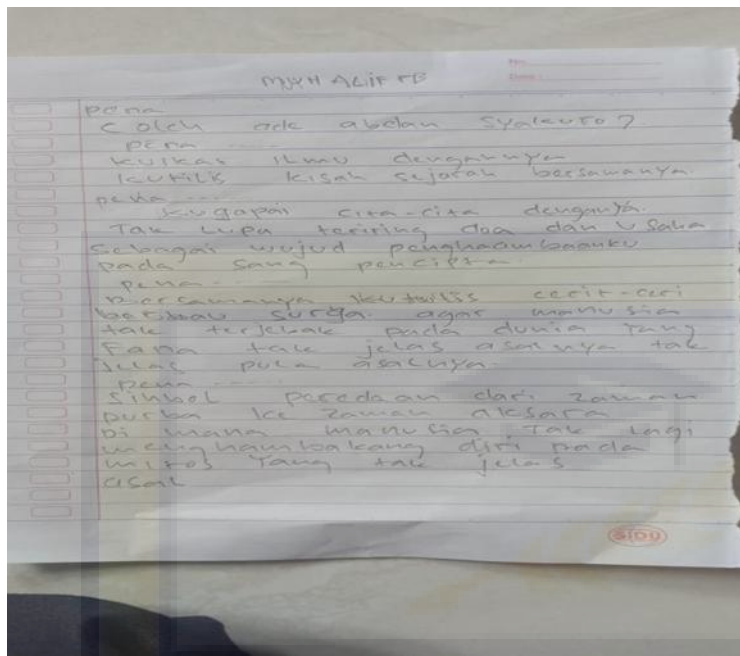 MUH ALIF FB
No.
Date :
pena
( oleh adk abdan syakuro )
pena ....
kuikas ilmu dengannya
kutilis kisah sejarah bersamanya.
pena ...
kugapai cita-cita denganya.
Tak lupa teriring doa dan usaha
sebagai wujud penghambaanku
pada sang pencipta.
pena ....
Bersamanya kutulis cerit-ceri
berimau surga. agar manusia
tak terjebak pada dunia yang
Fana tak jelas asalnya tak
jelas pula asalnya.
pena .....
simbol peredaan dari zaman
purba ke zaman aksara
Di mana manusia Tak lagi
menghambakang diri pada
mitos Yang tak jelas
asal
SIDU